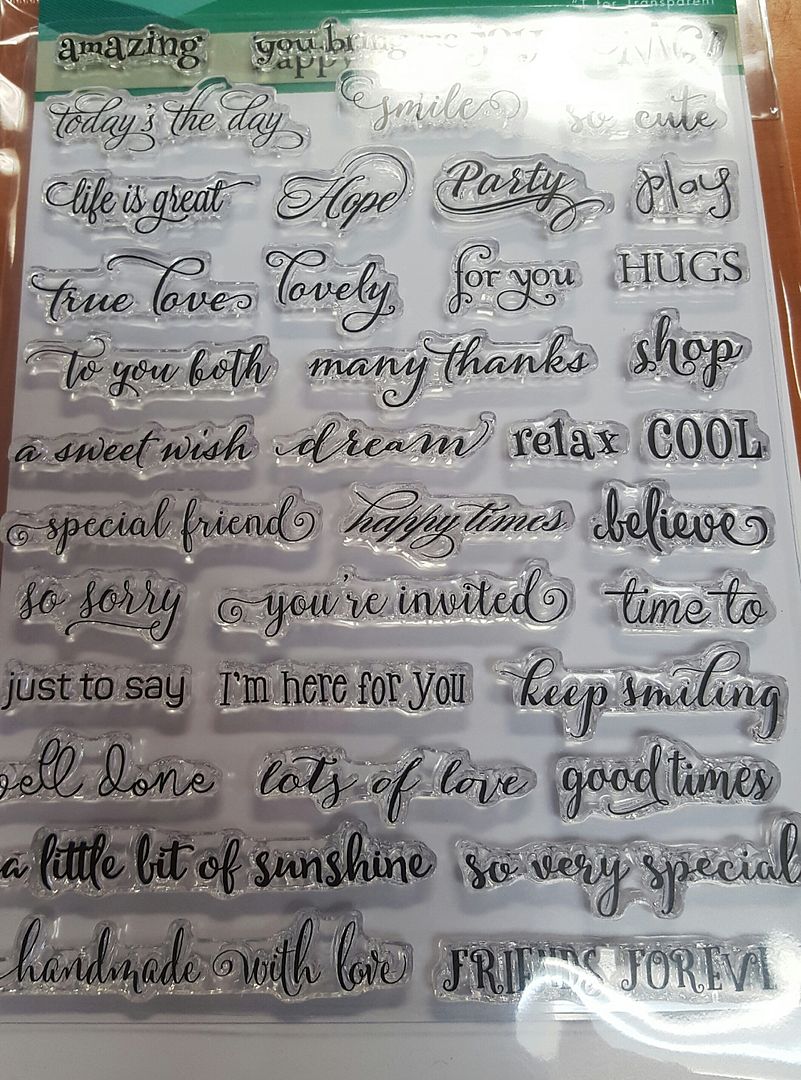 for Transparent
amazing you bring me joy
today's the day smile so cute
life is great Hope Party play
true love lovely for you HUGS
to you both many thanks shop
a sweet wish dream relax COOL
special friend happy times believe
so sorry you're invited time to
just to say I'm here for you keep smiling
well done lots of love good times
a little bit of sunshine so very special
handmade with love FRIENDS FOREV